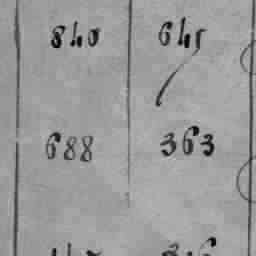 840 645
688 363